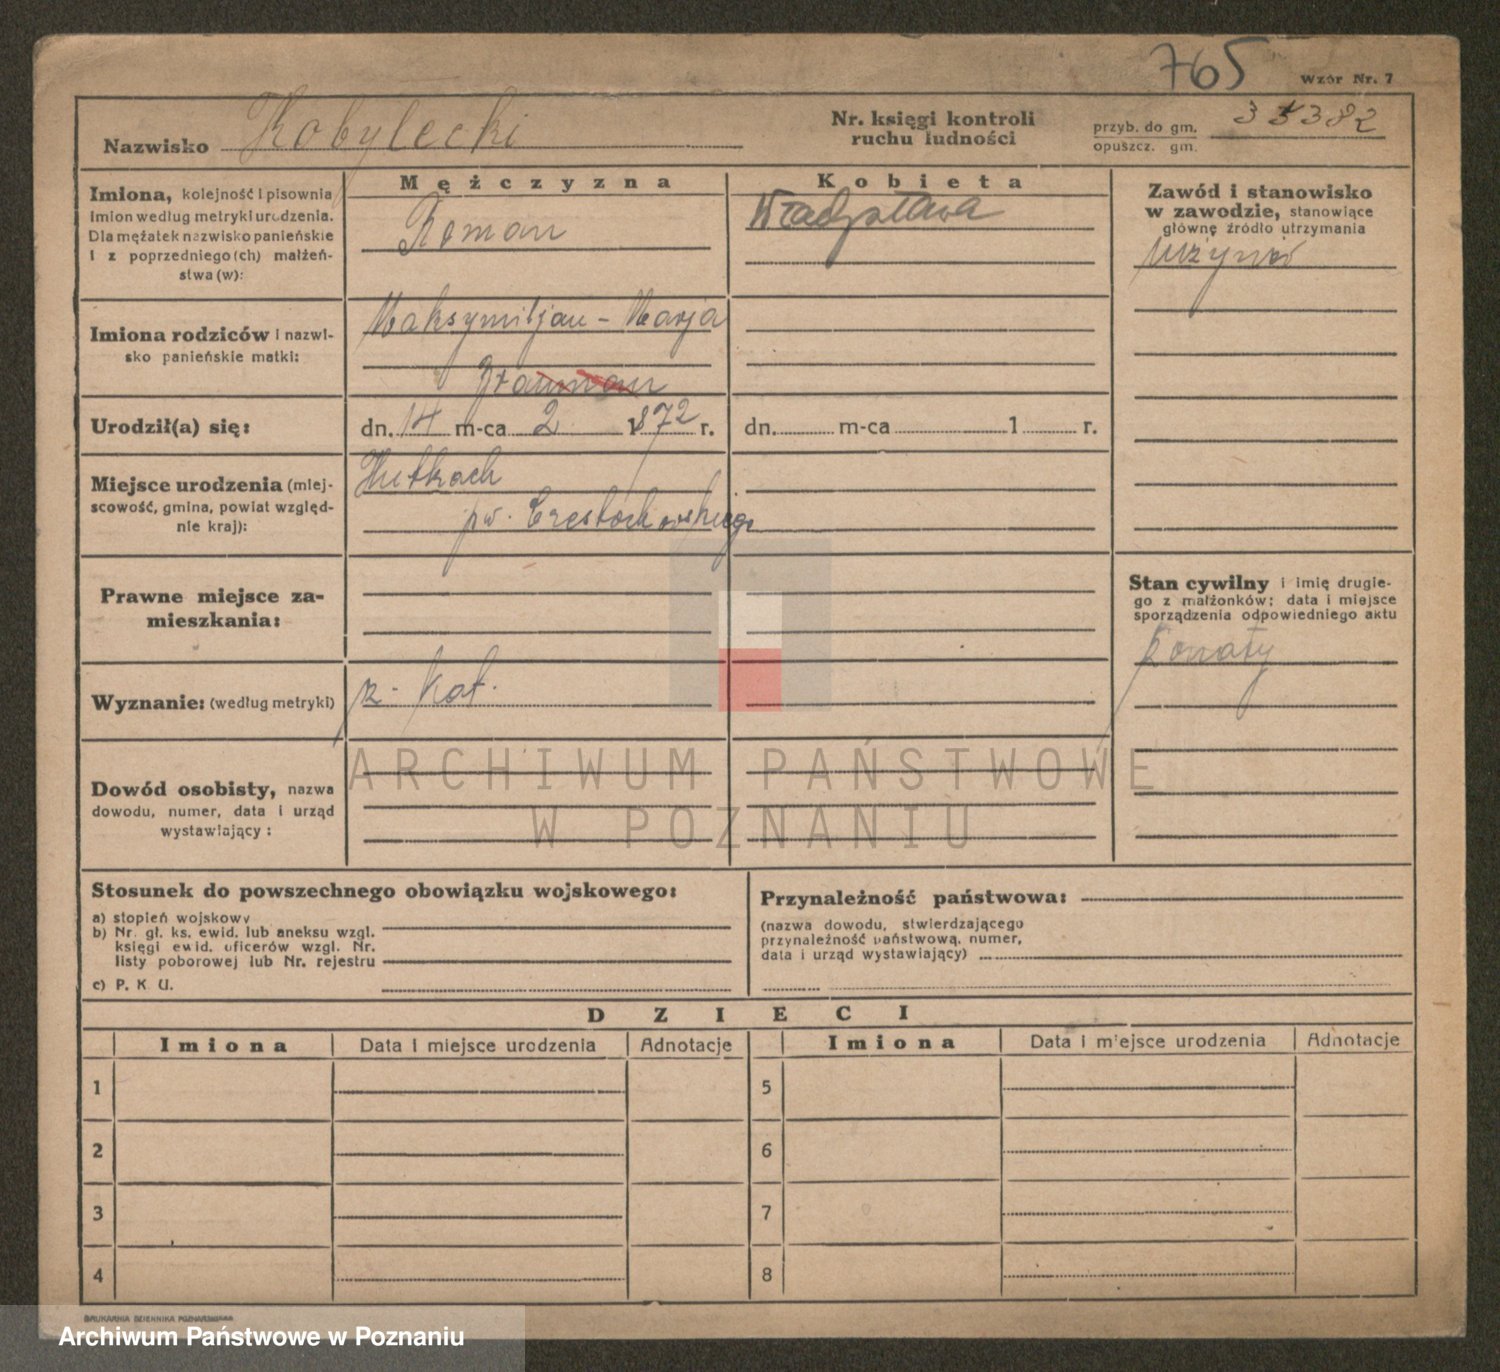 765
Wzór Nr. 7
Nazwisko Kobylecki
Nr. księgi kontroli
ruchu ludności
przyb. do gm.
opuszcz. gm.
33382
Imiona, kolejność i pisownia
imion według metryki urodzenia.
Dla mężatek nazwisko panieńskie
i z poprzedniego(ch) małżeń-
stwa (w):
Mężczyzna
Roman
Kobieta
Władysława
Zawód i stanowisko
w zawodzie, stanowiące
główne źródło utrzymania
inżynier
Imiona rodziców i nazwi-
sko panieńskie matki:
Maksymiljan - Marja
Urodził(a) się:
dn. 14 m-ca 2 1872 r.
dn. m-ca 1 r.
Miejsce urodzenia (miej-
scowość, gmina, powiat wzgléd-
nie kraj):
Hutkach
pw. Częstochowskiego
Prawne miejsce za-
mieszkania:
Stan cywilny i imię drugie-
go z małżonków; data i miejsce
sporządzenia odpowiedniego aktu
żonaty
Wyznanie: (według metryki)
rz. kat.
Dowód osobisty, nazwa
dowodu, numer, data i urząd
wystawiający:
ARCHIWUM PAŃSTWOWE
W POZNANIU
Stosunek do powszechnego obowiązku wojskowego:
a) stopień wojskowy
b) Nr. gł. ks. ewid. lub aneksu wzgl.
księgi ewid. oficerów wzgl. Nr.
listy poborowej lub Nr. rejestru
c) P. K. U.
Przynależność państwowa:
(nazwa dowodu, stwierdzającego
przynależność państwową, numer,
data i urząd wystawiający)
DZIECI
Imiona Data i miejsce urodzenia Adnotacje
Imiona Data i miejsce urodzenia Adnotacje
1
5
2
6
3
7
4
8
DRUKARNIA DZIENNIKA POZNAŃSKIEGO
Archiwum Państwowe w Poznaniu